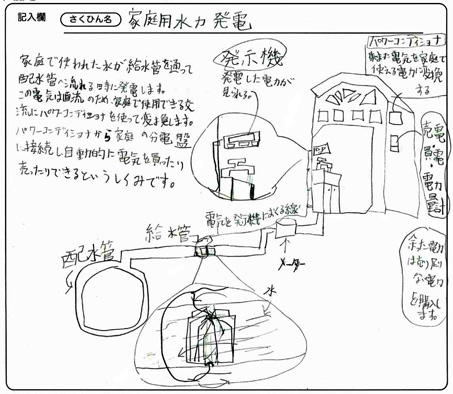 記入欄
さくひん名
家庭用水力発電
家庭で使われた水が給水管を通って
配水管へ流れる時に発電します。
この電気は直流のため、家庭で使用できる交
流にパワーコンディショナを使って変換します。
パワーコンディショナから家庭の分電盤
に接続し自動的に電気を買ったり
売ったりできるというしくみです。
発示機
発電した電力が
見れる。
パワーコンディショナ
電気を家庭で
使える電力が変換
する
売電・
買電・
電力
量計
余た電力
は売り足り
ない電力
を購入し
ます。
電気を発示機におくる線
給水管
配水管
メーター
水